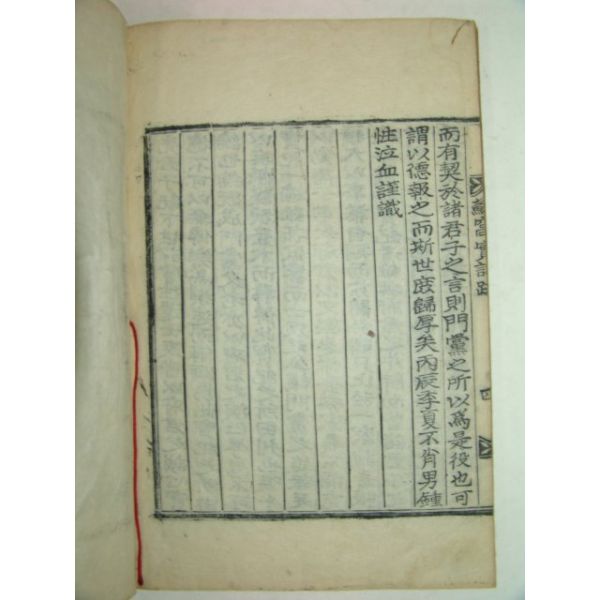 而有契於諸君子之言則門黨之所以為是役也可
謂以德報之而斯世庶歸厚矣丙辰季夏不肖男鍾
性泣血謹識